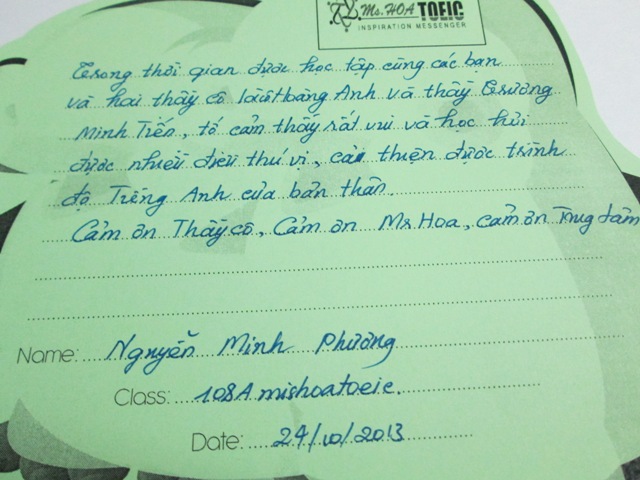 Ms. HOA TOEIC
INSPIRATION MESSENGER
Trong thời gian được học tập cùng các bạn
và hai thầy cô là Hoàng Anh và thầy Trương
Minh Tiến, tớ cảm thấy rất vui và học hỏi
được nhiều điều thú vị, cải thiện được trình
độ Tiếng Anh của bản thân.
Cảm ơn Thầy cô, Cảm ơn Ms Hoa, cảm ơn Trung tâm
Name: Nguyễn Minh Phương
Class: 108A mishoatoeic.
Date: 24/10/2013